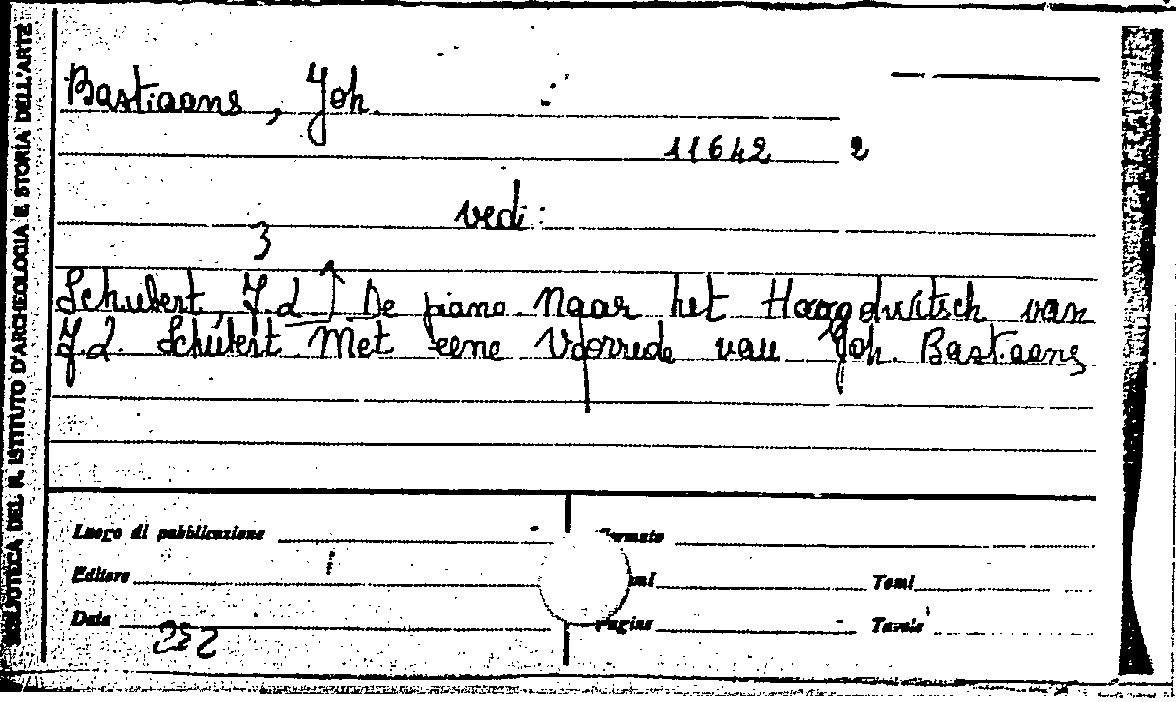 BIBLIOTECA DEL R. ISTITUTO D'ARCHEOLOGIA E STORIA DELL'ARTE
Bastiaans, Joh.
11642 2
vedi:
3
Schubert, F. L. De piano Naar het Hoogduitsch van
F. L. Schubert Met eene Voorrede van Joh. Bastiaans
Luogo di pubblicazione
Formato
Editore
Tomi
Data
Pagine
Tavole
252